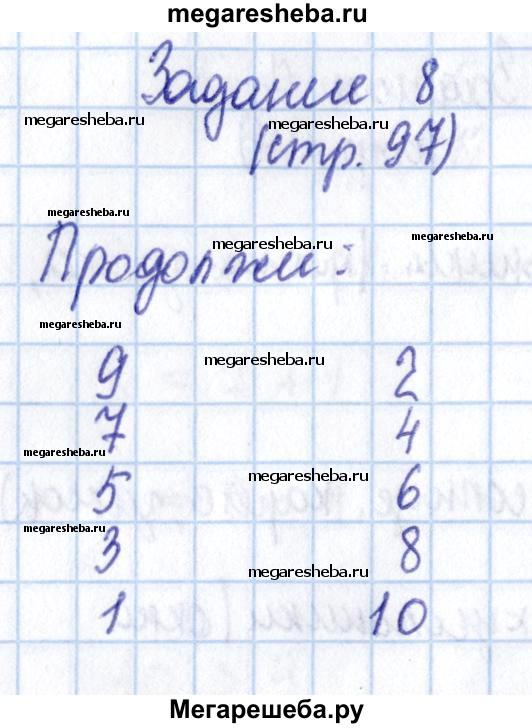 megaresheba.ru
Задание 8
megaresheba.ru megaresheba.ru
(стр. 97)
megaresheba.ru
megaresheba.ru
Продолжи:
megaresheba.ru
9 megaresheba.ru 2
7 4
megaresheba.ru
5 megaresheba.ru 6
megaresheba.ru
3 8
megaresheba.ru
1 10
Мегарешеба.ру